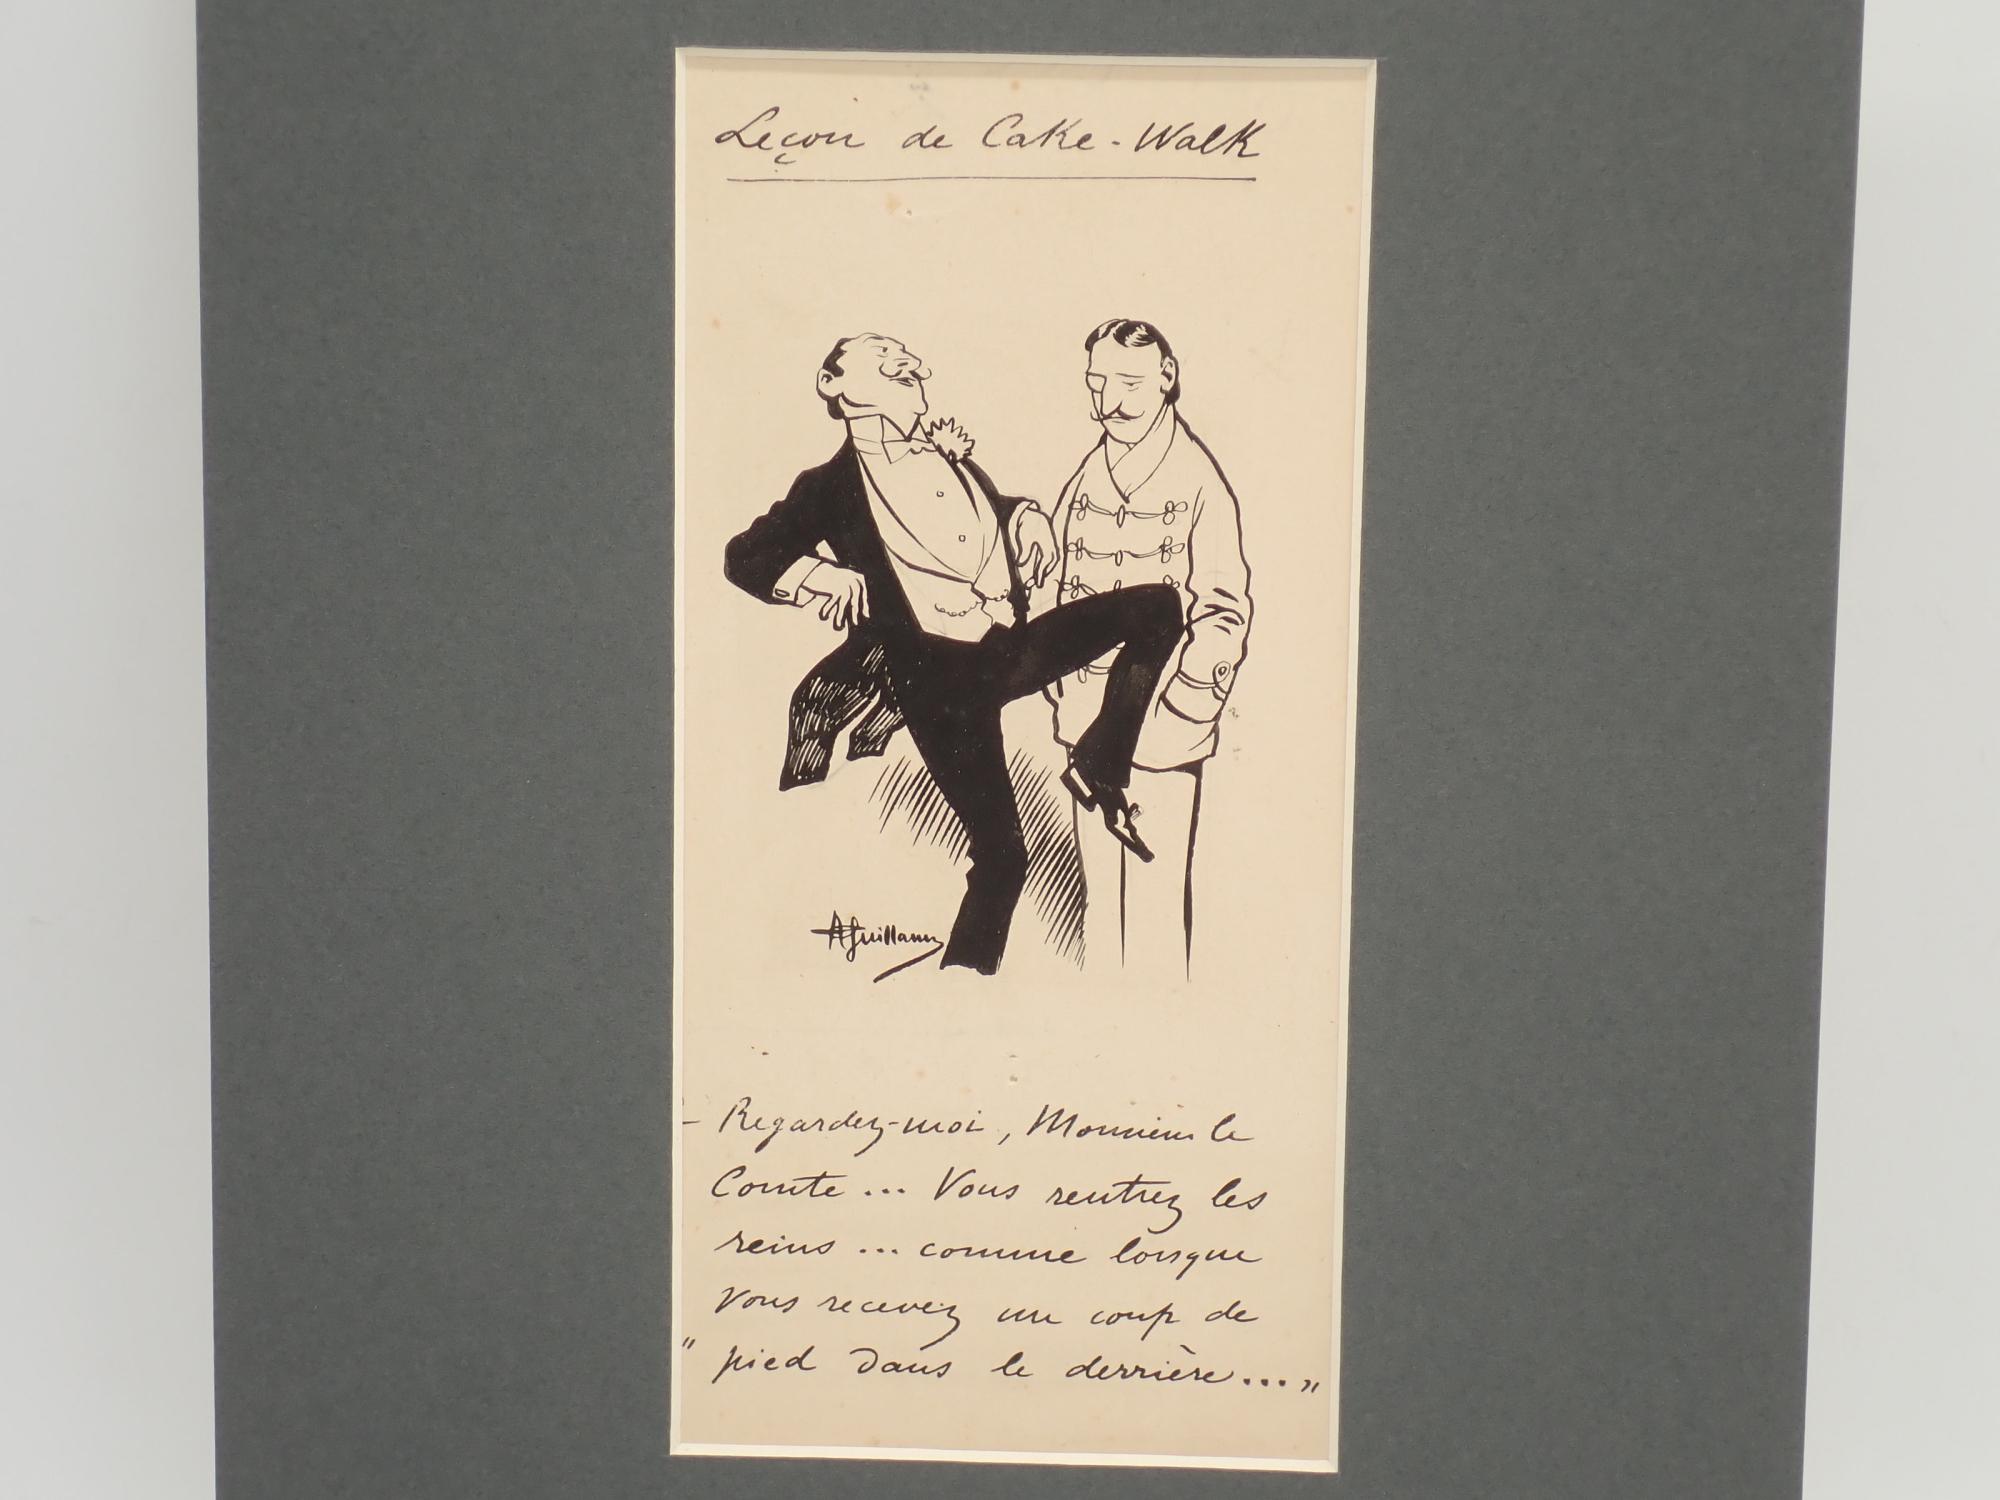 Leçon de Cake-Walk
AGuillaume
- Regardez-moi, Monsieur le
Comte... Vous rentrez les
reins... comme lorsque
vous recevez un coup de
" pied dans le derrière... "